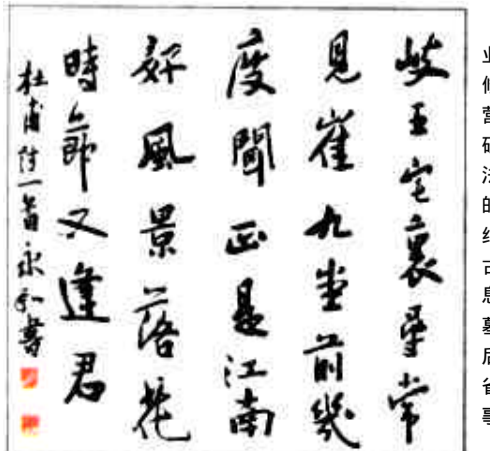 岐王宅裏尋常
見崔九堂前幾
度聞正是江南
好風景落花
時節又逢君
杜甫詩一首永和書